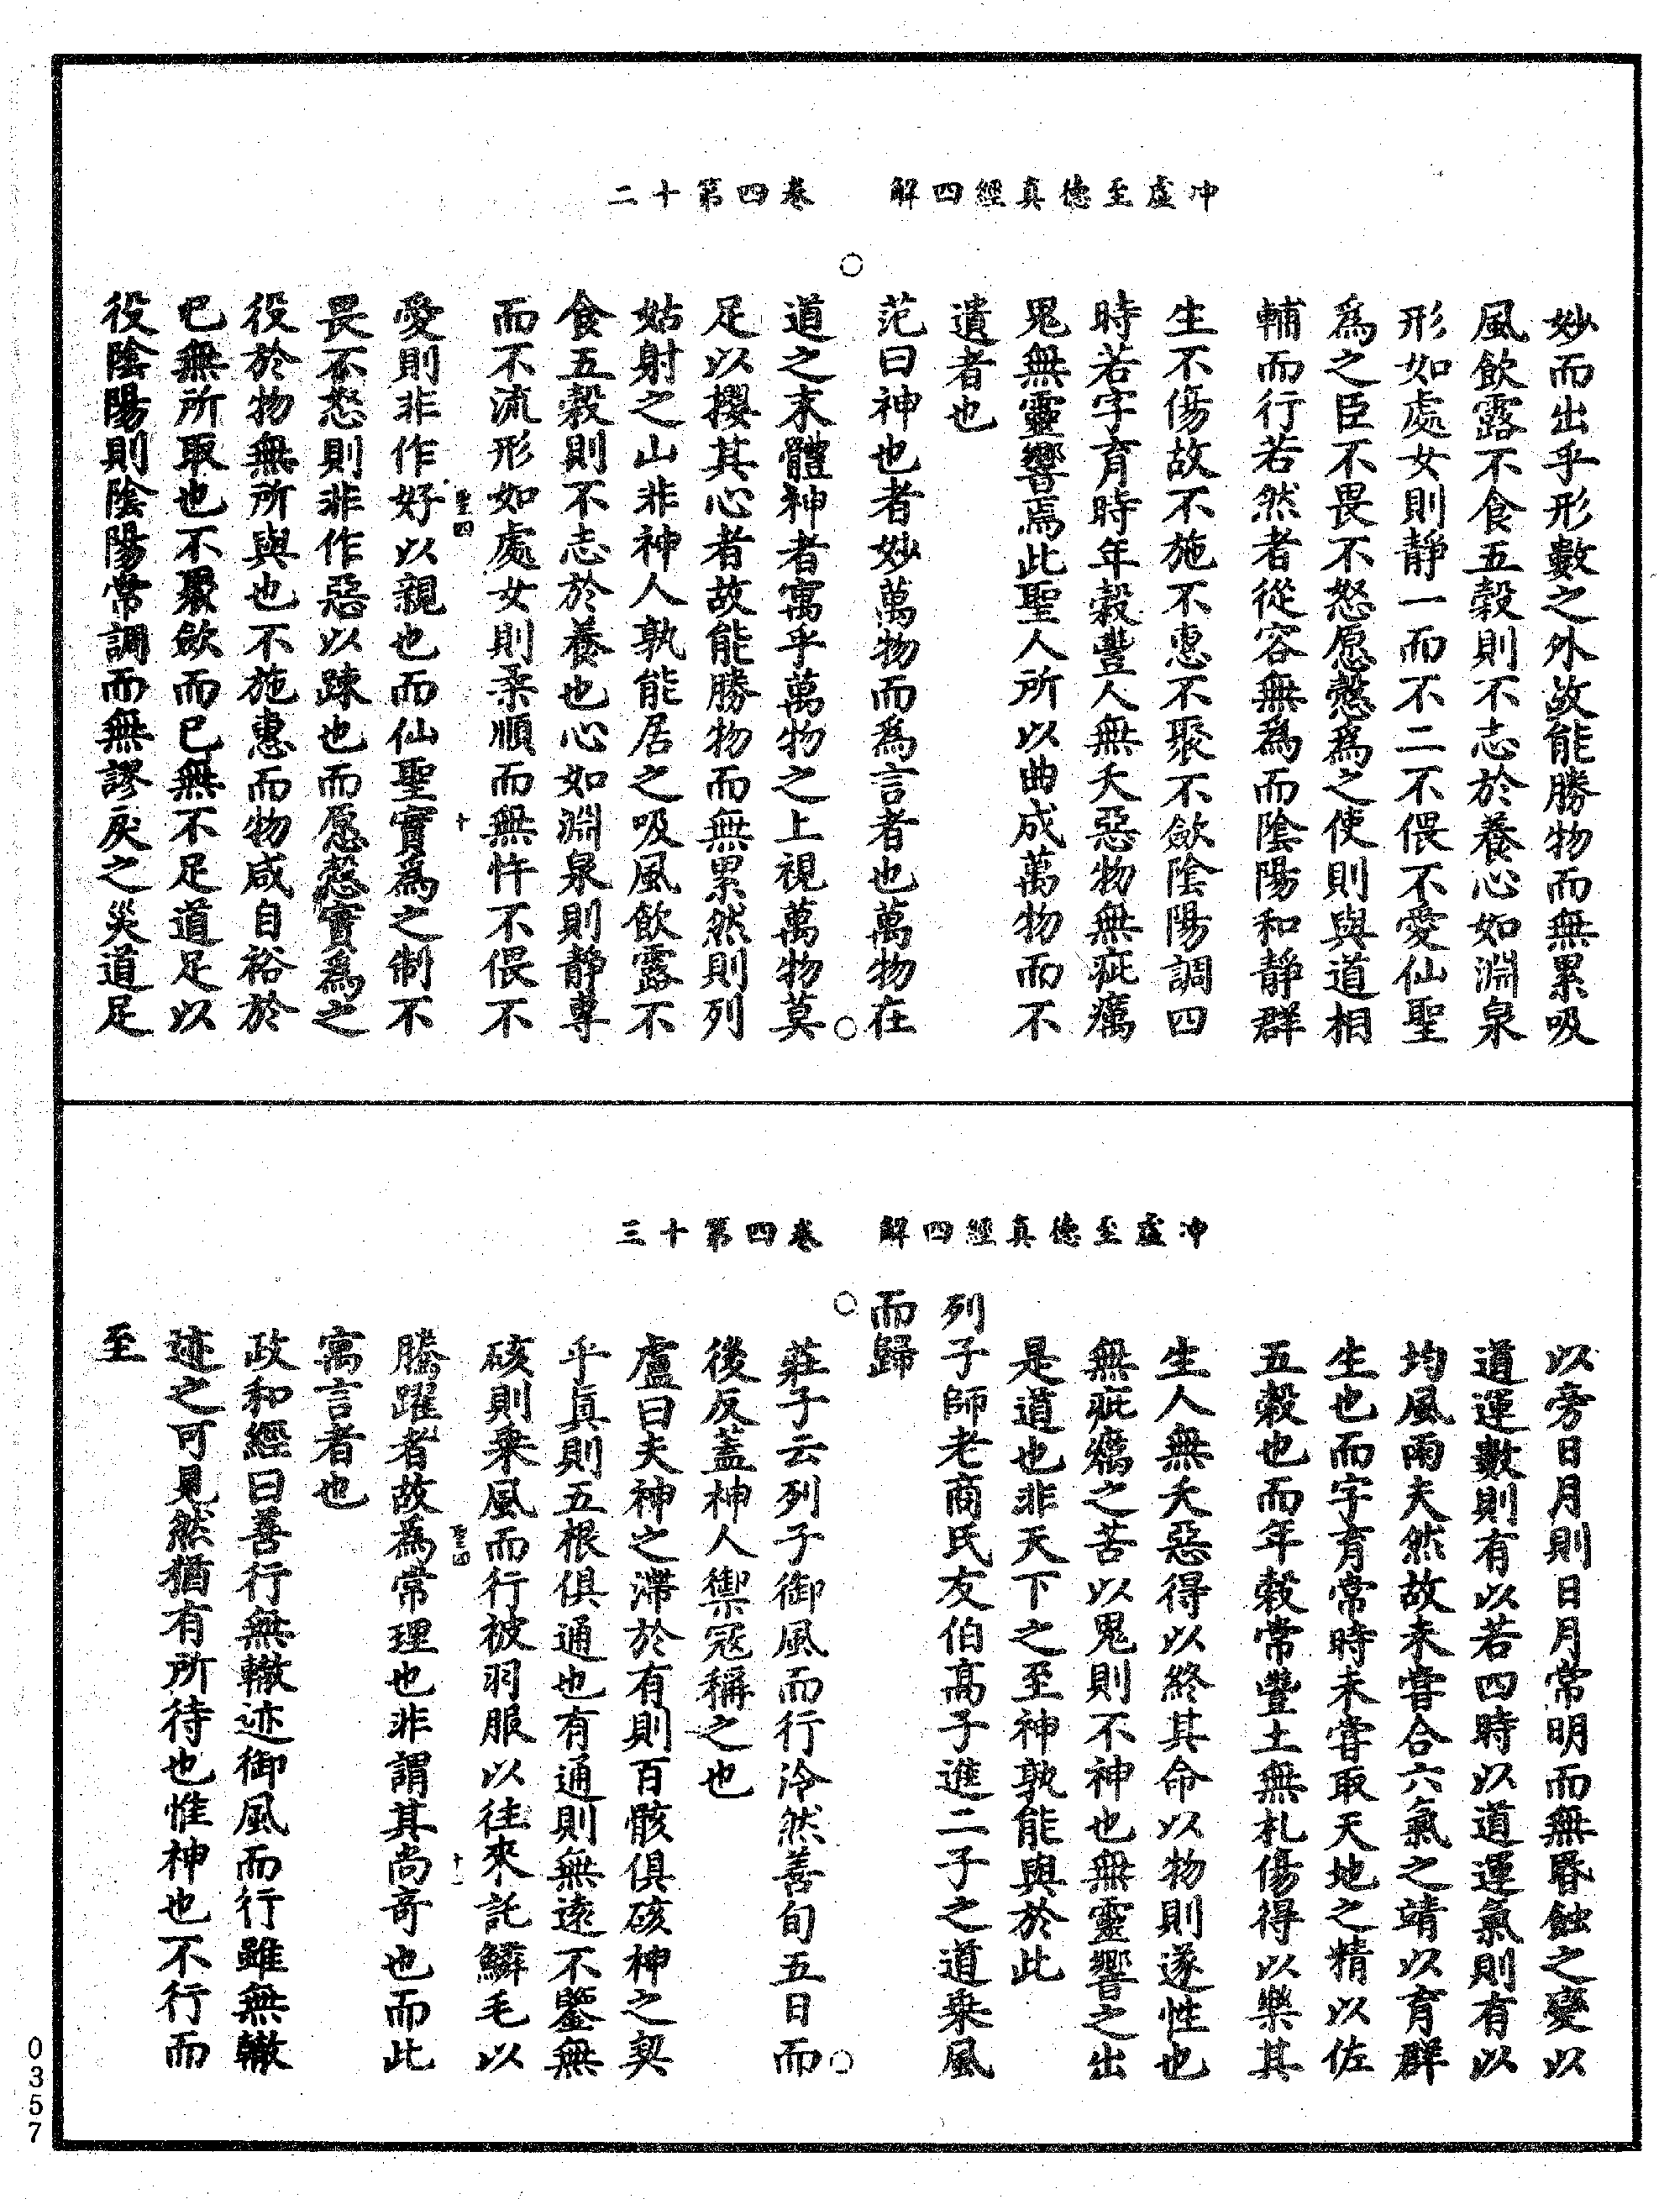 冲虛至德真經四解　卷四第十二
妙而出乎形數之外故能勝物而無累吸
風飲露不食五穀則不志於養心如淵泉
形如處女則靜一而不二不偎不愛仙聖
爲之臣不畏不怒愿慤爲之使則與道相
輔而行若然者從容無爲而陰陽和靜群
生不傷故不施不惠不聚不斂陰陽調四
時若字育時年穀豐人無夭惡物無疵癘
鬼無靈響焉此聖人所以曲成萬物而不
遺者也
范曰神也者妙萬物而爲言者也萬物在
道之末體神者寓乎萬物之上視萬物莫
足以攖其心者故能勝物而無累然則列
姑射之山非神人孰能居之吸風飲露不
食五穀則不志於養也心如淵泉則靜專
而不流形如處女則柔順而無忤不偎不
聖四　十
愛則非作好以親也而仙聖實爲之制不
畏不怒則非作惡以踈也而愿慤實爲之
役於物無所與也不施惠而物咸自裕於
已無所取也不聚斂而已無不足道足以
役陰陽則陰陽常調而無謬戾之災道足
冲虛至德真經四解　卷四第十三
以旁日月則日月常明而無昏蝕之變以
道運數則有以若四時以道運氣則有以
均風雨夫然故未嘗合六氣之靖以育群
生也而字育常時未嘗取天地之精以佐
五穀也而年穀常豐土無札傷得以樂其
生人無夭惡得以終其命以物則遂性也
無疵癘之苦以鬼則不神也無靈響之出
是道也非天下之至神孰能與於此
列子師老商氏友伯高子進二子之道乗風
而歸
莊子云列子御風而行泠然善旬五日而
後反蓋神人禦寇稱之也
盧曰夫神之滯於有則百骸俱硋神之契
乎真則五根俱通也有通則無遠不鑒無
硋則乗風而行被羽服以往來託鱗毛以
聖四　十一
騰躍者故為常理也非謂其尚奇也而此
寓言者也
政和經曰善行無轍迹御風而行雖無轍
迹之可見然猶有所待也惟神也不行而
至
0357